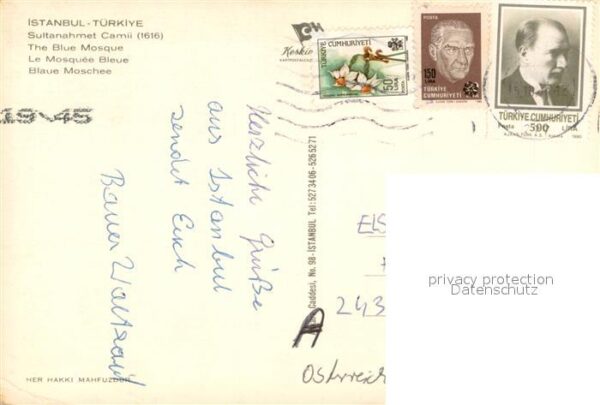 İSTANBUL - TÜRKİYE
Sultanahmet Camii (1616)
The Blue Mosque
Le Mosquée Bleue
Blaue Moschee
Keskin
TÜRKİYE CUMHURİYETİ
50
LİRA
POSTA
150
LİRA
TÜRKİYE
CUMHURİYETİ
TÜRKİYE CUMHURİYETİ
Posta 500 LİRA
1945
Herzliche Grüße
aus Istanbul
sendet Euch
Bauer Waltraud
Caddesi, No. 98 - İSTANBUL Tel: 5273406-5265271
ELS
243
A
Österreich
HER HAKKI MAHFUZDUR
privacy protection
Datenschutz